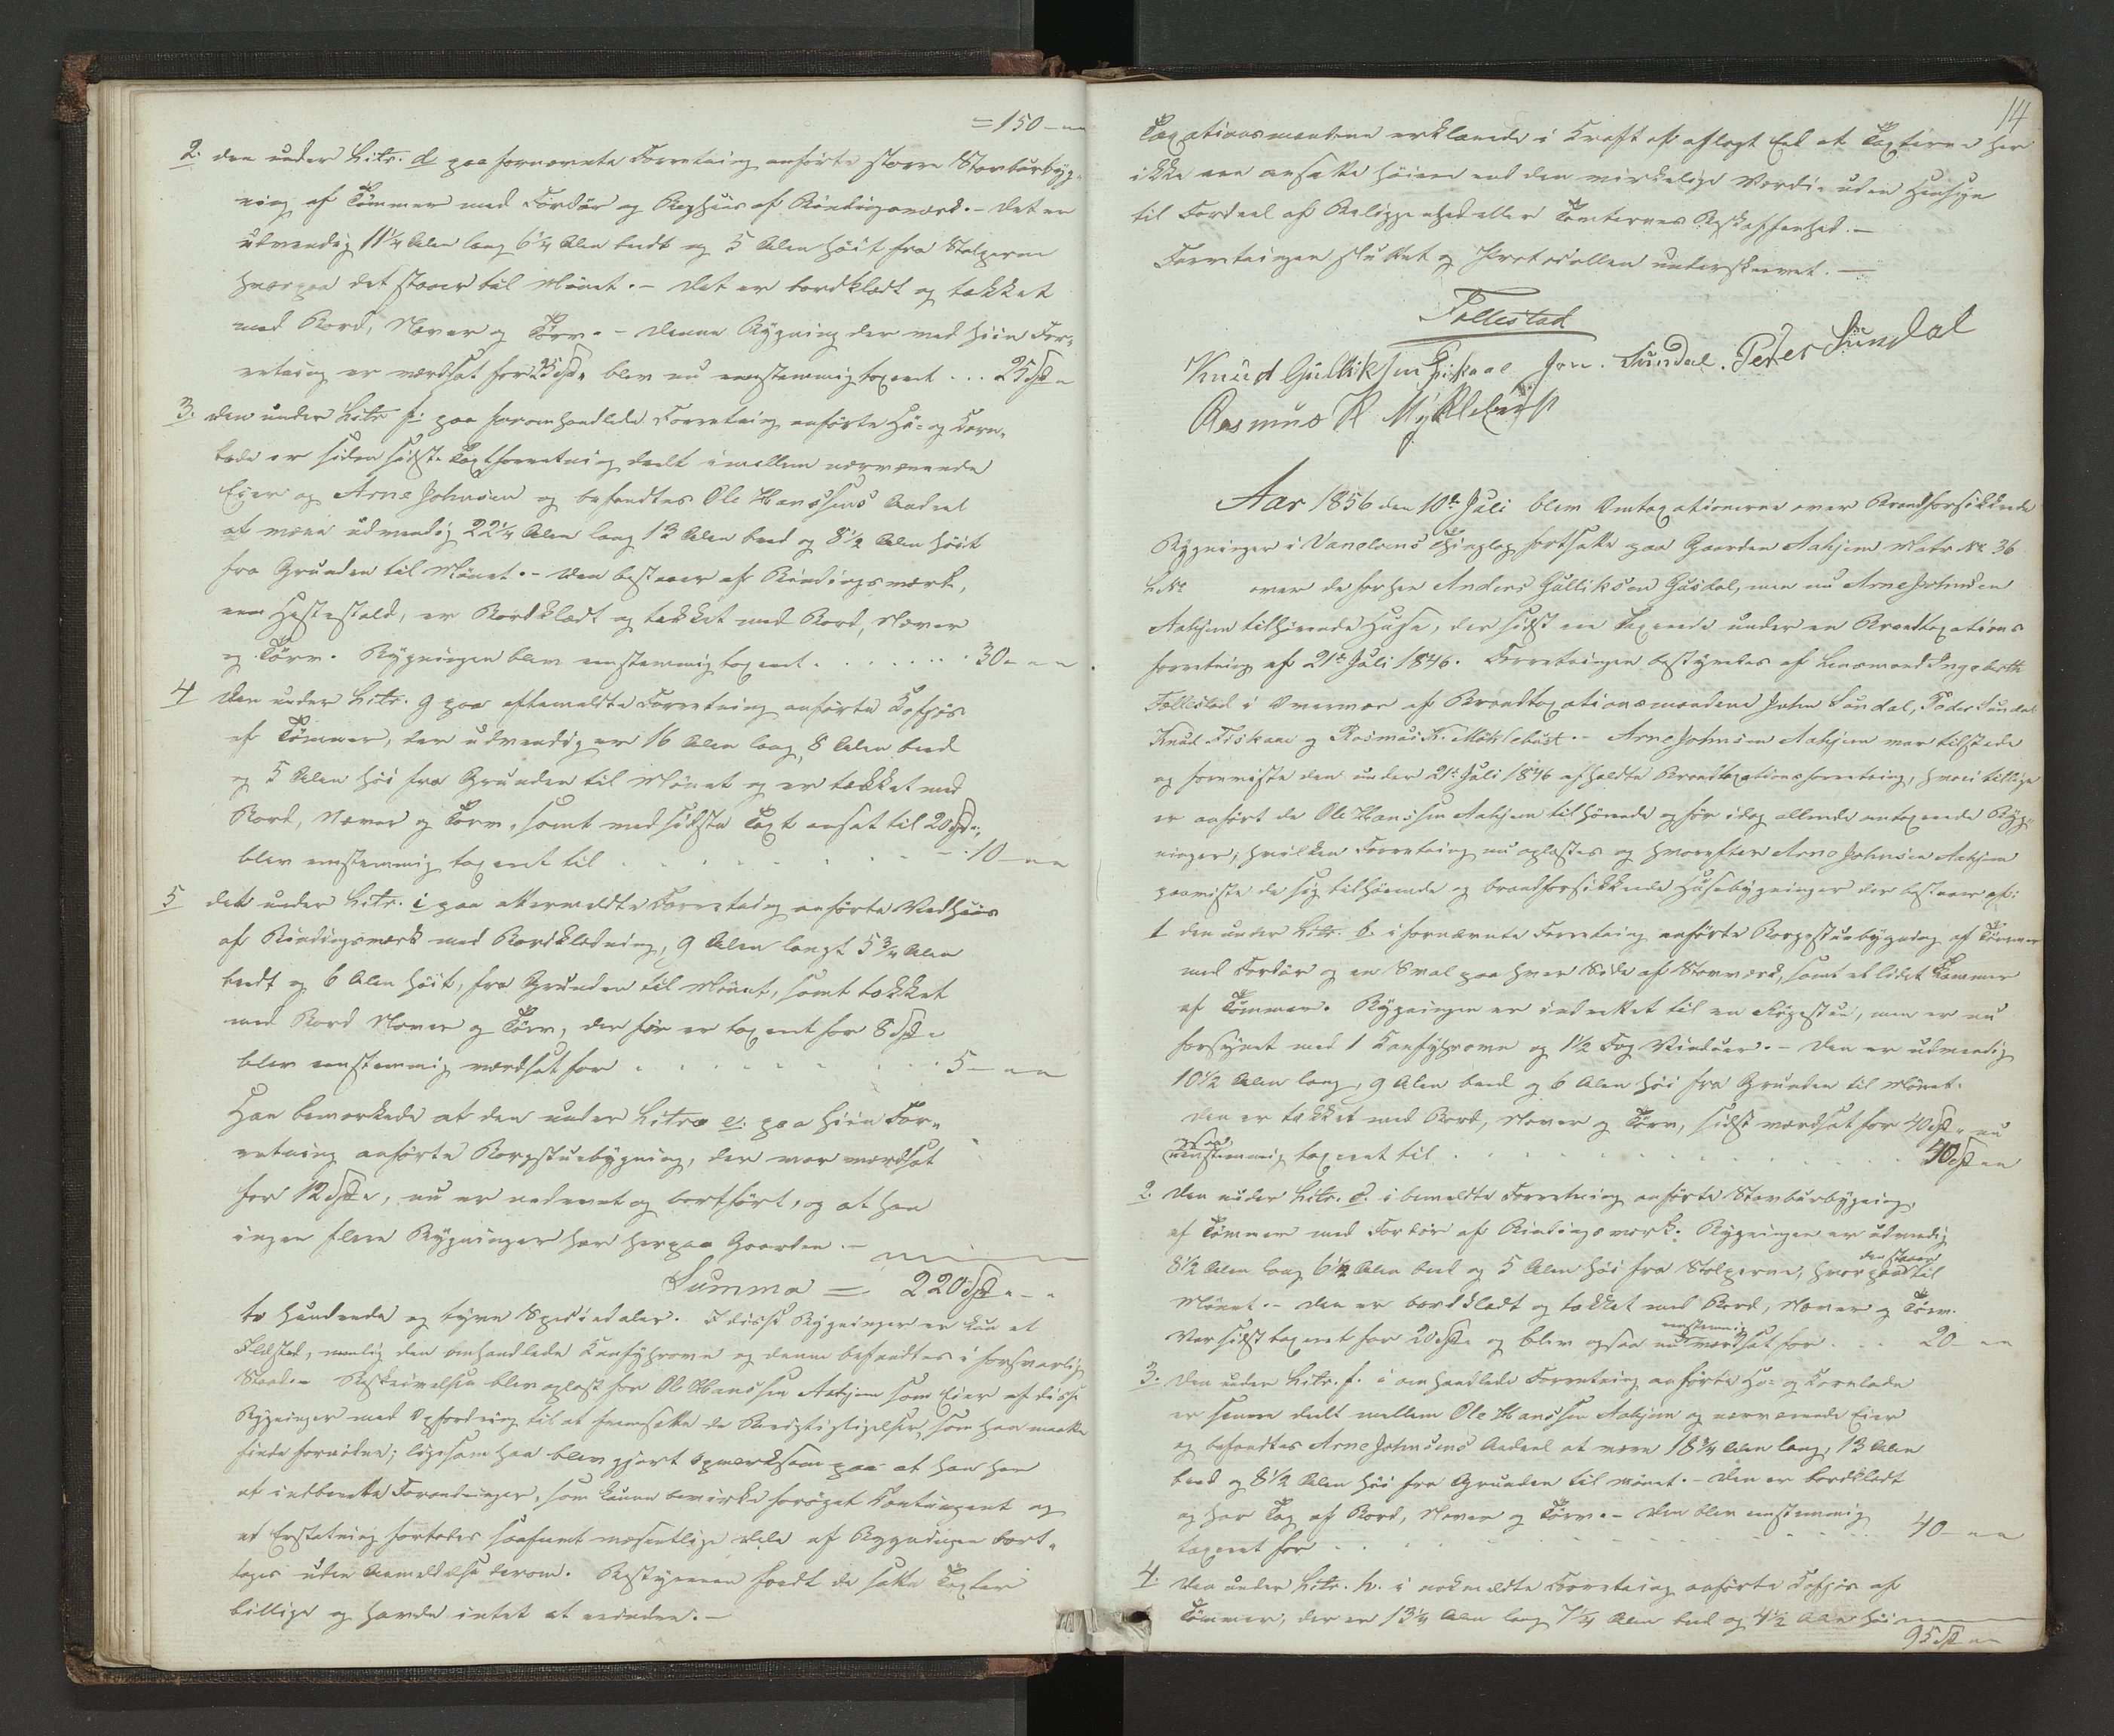 = 150 – " "
2. den under Litr. d paa fornævnte Forretning anførte større Stavburbyg-
ning af Tømmer med Fordør og Raphuus af Bindingsværk. – Det er
udvendig 11 1/4 Alen lang 6 1/4 Alen bredt og 5 Alen høit fra Stolperne
hvorpaa det staaer til Mønet. – Det er bordklædt og tækket
med Bord, Næver og Torv. – Denne Bygning der ved hiin For-
retning er værdsat for 25 Spd. blev nu eenstemmig taxeret . . . 25 Spd "
3. den under Litr f. paa foromhandlede Forretning anførte Hø- og Korn-
lade er siden sidste Taxtforretning deelt imellem nærværende
Eier og Arne Johnsen og befandtes Ole Hanssens Andeel
at være udvendig 22 1/4 Alen lang 13 Alen bred og 8 1/2 Alen høit
fra Grunden til Mønet. – Den bestaaer af Bindingsværk,
een Hestestald, er Bordklædt og tækket med Bord, Næver
og Torv. Bygningen blev eenstemmig taxeret . . . . . . . . 30 – " "
4 Den under Litr. g paa oftemeldte Forretning anførte Kofjøs
af Tømmer, der udvendig er 16 Alen lang, 8 Alen bred
og 5 Alen høi fra Grunden til Mønet og er tækket med
Bord, Næver og Torv, samt ved sidste Taxt ansat til 20 Spd.,
blev eenstemmig taxeret til . . . . . . . . 10 – " "
5 det under Litr. i paa ommeldte Forretning anførte Vedhuus
af Bindingsværk med Bordklædning, 9 Alen langt 5 3/4 Alen
bredt og 6 Alen høit, fra Grunden til Mønet, samt tækket
med Bord Næver og Torv, der før er taxeret for 8 Spd "
blev eenstemmig værdsat for . . . . . . . . 5 – " "
Han bemærkede at den under Litra e. paa hiin For-
retning anførte Borgstuebygning, der var værdsat
for 12 Spd ", nu er nedrevet og bortført, og at han
ingen flere Bygninger har herpaa Gaarden. –
Summa = 220 Spd " – "
to hundrede og tyve Speciedaler. I disse Bygninger er kun et
Ildsted, nemlig den omhandlede Kakkelovn og denne befandtes i forsvarlig
Stand. – Beskrivelsen blev oplæst for Ole Hanssen Aahjem som Eier af disse
Bygninger med Opfordring til at fremsætte de Berigtigelser, som han maatte
finde fornødne; ligesom han blev gjort opmærksom paa at han har
at indberette Forandringer, som kunne bevirke forøget Contingent og
at Erstatning fortabes saafremt væsentlige Dele af Bygningen bort-
tages uden Anmeldelse derom. Bestyreren fandt de satte Taxter
billige og havde intet at erindre. –
14
Taxationsmændene erklærede i Kraft af aflagt Eed at Taxterne her
ikke ere ansatte høiere end den virkelige Værdie uden Hensyn
til Fordeel af Beliggenhed eller Tomternes Beskaffenhed. –
Forretningen sluttet og Protocollen underskrevet. –
Follestad
Knud Gulliksen Fiskaae Jon. Sundal. Peder Sundal
Rasmus K Myklebust
Aar 1856 den 10de Juli blev Omtaxationerne over Brandforsikkrede
Bygninger i Vanelvens Thinglag fortsatte paa Gaarden Aahjem Matr No 36
L No over de forhen Anders Gulliksen Gusdal, men nu Arne Johnsen
Aahjem tilhørende Huse, der sidst ere taxerede under en Brandtaxations
forretning af 21de Juli 1846. Forretningen bestyredes af Lensmand Ingebrith
Follestad i Overvær af Brandtaxationsmændene John Sundal, Peder Sundal
Knud Fiskaae og Rasmus K. Møklebust. – Arne Johnsen Aahjem var tilstede
og foreviste den under 21de Juli 1846 afholdte Brandtaxationsforretning, hvori tillige
er anført de Ole Hanssen Aahjem tilhørende og før idag allerede omtaxerede Byg-
ninger, hvilken Forretning nu oplæstes og hvorefter Arne Johnsen Aahjem
paaviste de sig tilhørende og brandforsikkrede Huusebygninger der bestaaer af:
1 den under Litr. b. i fornævnte Forretning anførte Borgestuebygning af Tømmer
med Fordør og en Sval paa hver Side af Stavværk, samt et lidet Kammer
af Tømmer. Bygningen er indrettet til en Røgestue, men er nu
forsynet med 1 Kakkelovn og 1 1/2 Fag Vinduer. – Den er udvendig
10 1/2 Alen lang, 9 Alen bred og 6 Alen høi fra Grunden til Mønet.
Den er tækket med Bord, Næver og Torv, sidst værdsat for 40 Spd " nu
ogsaa
eenstemmig taxeret til . . . . . . . . 40 Spd " "
2. Den under Litr. d. i bemeldte Forretning anførte Stavburbygning,
af Tømmer med Fordør af Bindingsværk. Bygningen er udvendig
8 1/2 Alen lang 6 1/2 Alen bred og 5 Alen høi fra Stolperne, hvorpaa den staaer til
Mønet. – Den er bordklædt og tækket med Bord, Næver og Torv.
Var sidst taxeret for 20 Spd " og blev ogsaa nu eenstemmig værdsat for . . . 20 – " "
3. Den under Litr. f. i omhandlede Forretning anførte Hø- og Kornlade
er senere deelt mellem Ole Hanssen Aahjem og nærværende Eier
og befandtes Arne Johnsens Andeel at være 18 3/4 Alen lang, 13 Alen
bred og 8 1/2 Alen høi fra Grunden til Mønet. – Den er bordklædt
og har Tag af Bord, Næver og Torv. – Den blev eenstemmig
taxeret for . . . . . . . . 40 – " "
4. Den under Litr. h. i nokmeldte Forretning anførte Kofjøs af
Tømmer, der er 13 1/4 Alen lang 7 1/4 Alen bred og 4 1/2 Alen høi
95 Spd " "